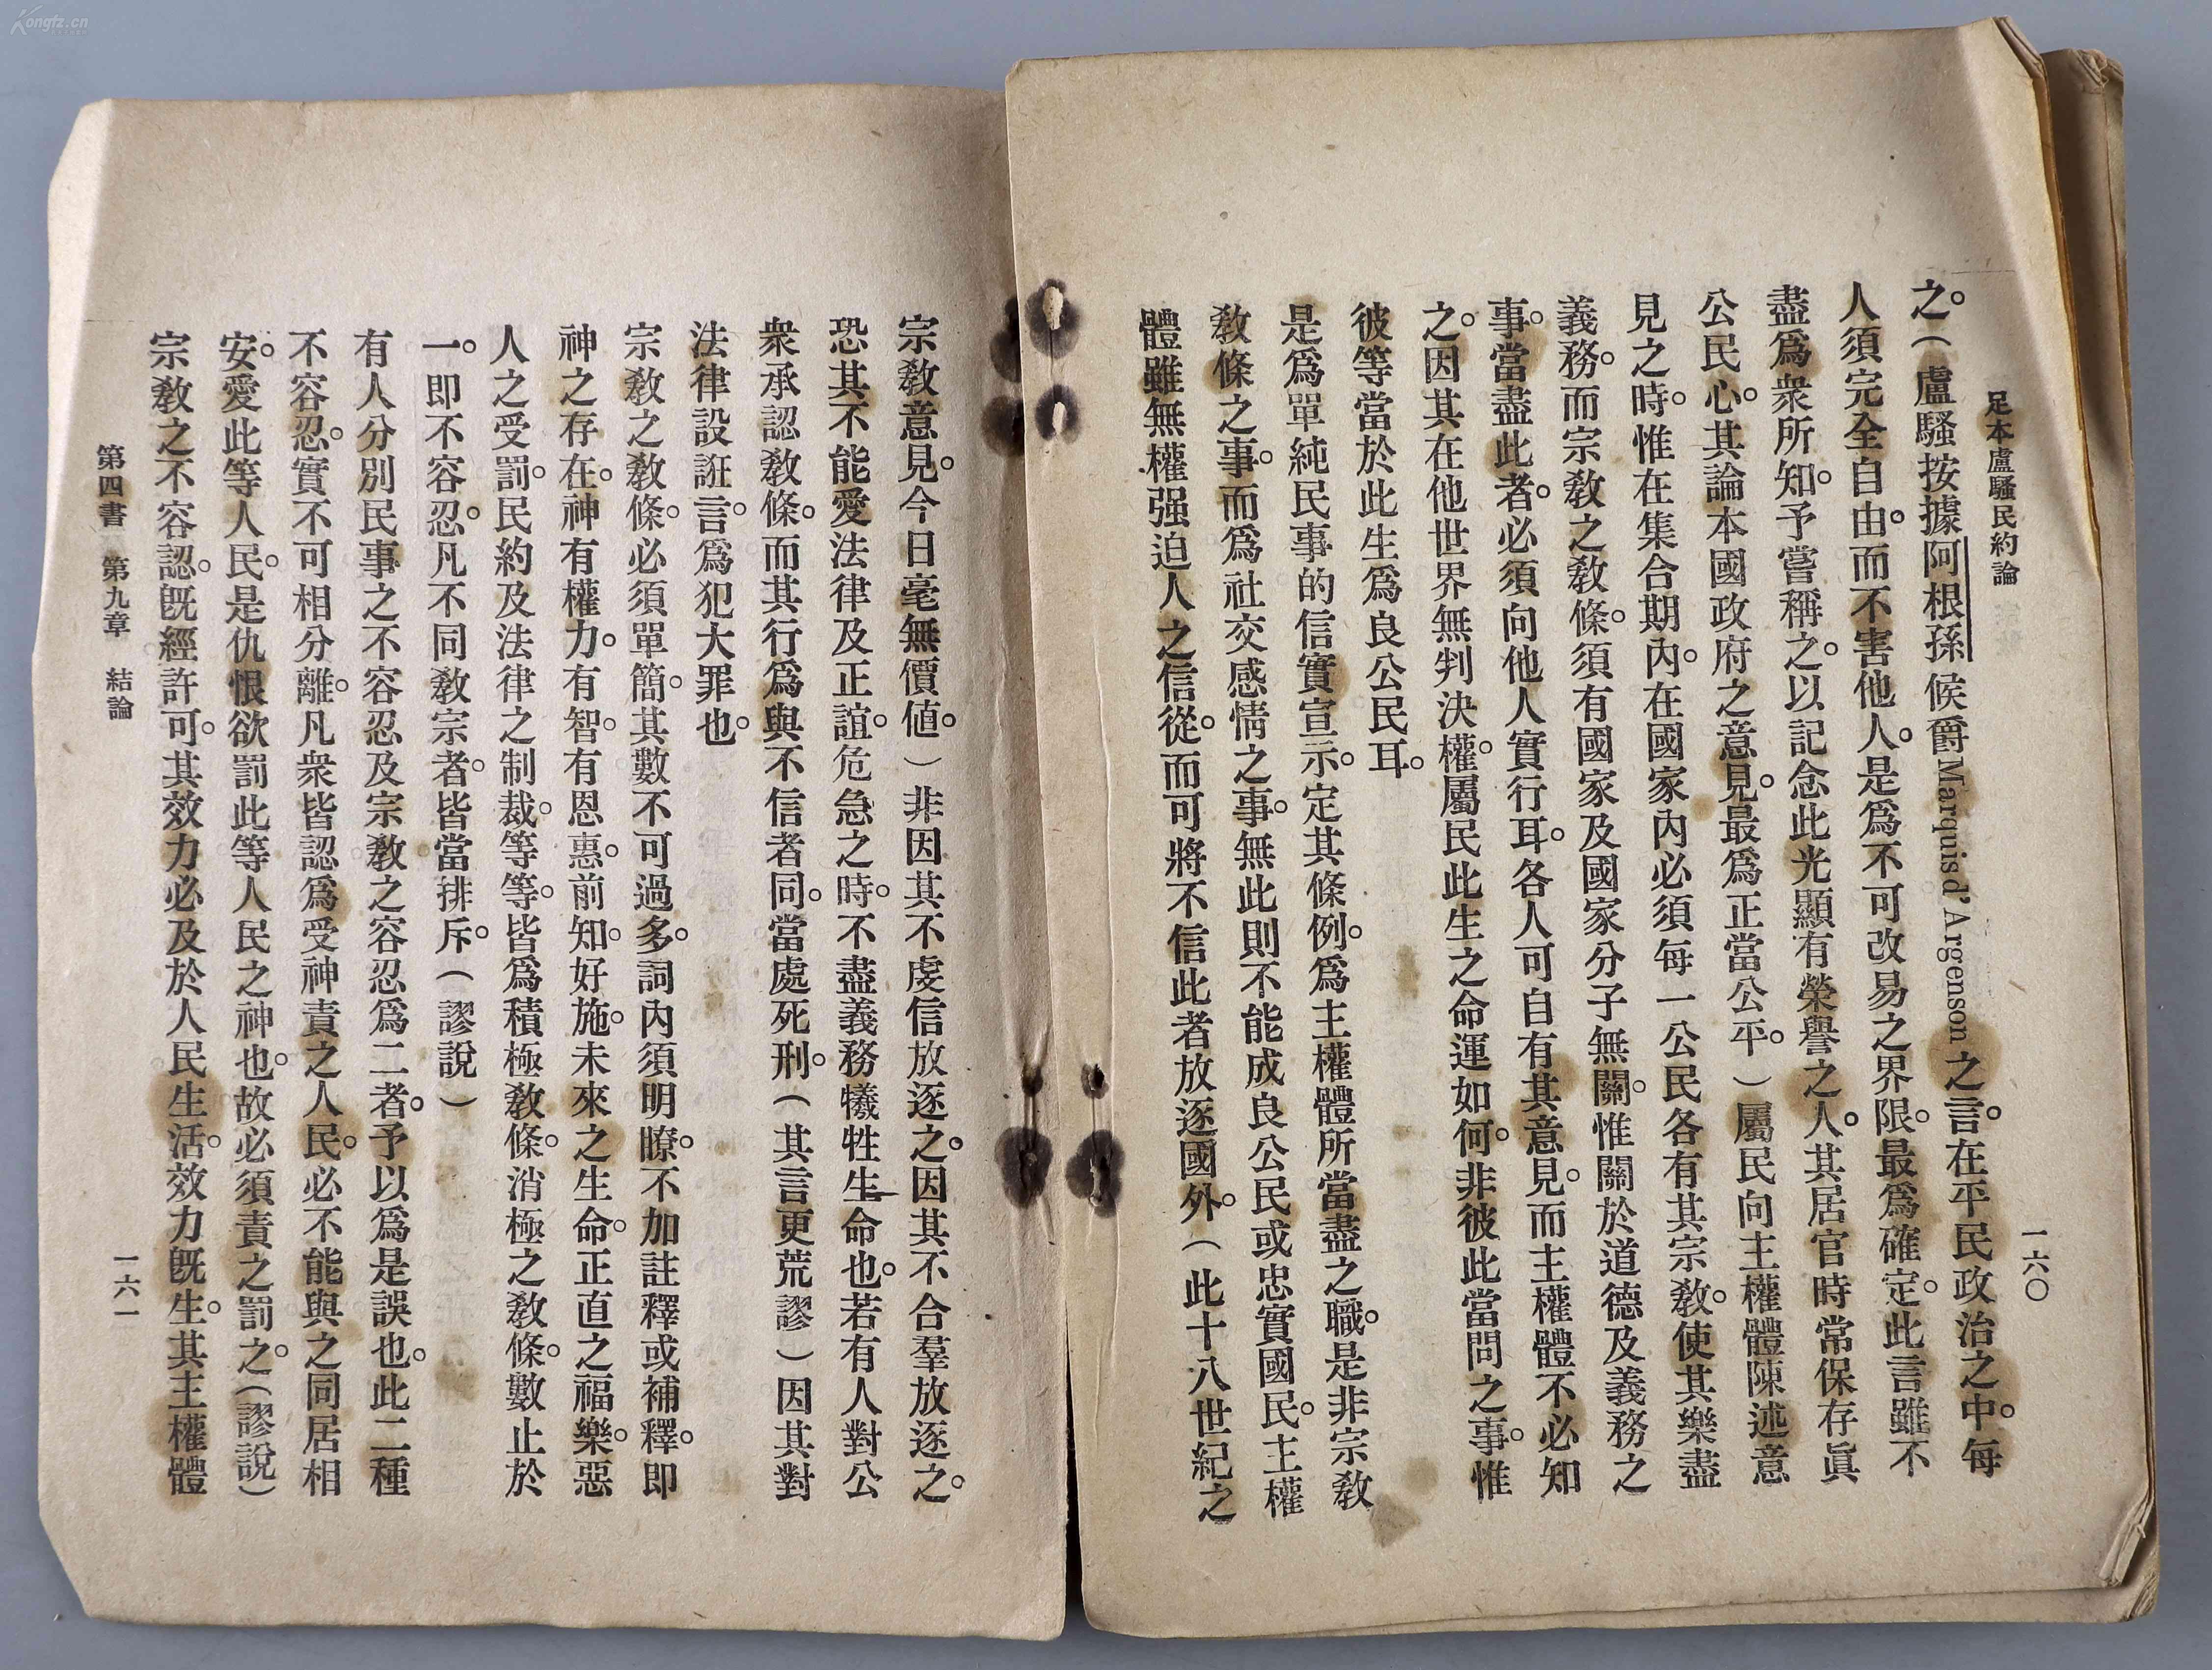 足本盧騷民約論
一六〇
之。（盧騷按據阿根孫候爵Marquis d'Argenson之言。在平民政治之中。每
人須完全自由。而不害他人。是爲不可改易之界限。最爲確定。此言雖不
盡爲衆所知。予嘗稱之。以記念此光顯有榮譽之人。其居官時常保存眞
公民心。其論本國政府之意見。最爲正當公平。）屬民向主權體陳述意
見之時。惟在集合期內。在國家內必須每一公民各有其宗敎。使其樂盡
義務。而宗敎之敎條。須有國家及國家分子無關。惟關於道德及義務之
事。當盡此者。必須向他人實行耳。各人可自有其意見。而主權體不必知
之。因其在他世界無判決權。屬民此生之命運如何。非彼此當問之事。惟
彼等當於此生爲良公民耳。
是爲單純民事的信實宣示。定其條例。爲主權體所當盡之職。是非宗敎
敎條之事。而爲社交感情之事。無此則不能成良公民或忠實國民。主權
體雖無權强迫人之信從。而可將不信此者放逐國外。（此十八世紀之
宗敎意見。今日毫無價値。）非因其不虔信放逐之。因其不合羣放逐之。
恐其不能愛法律及正誼。危急之時。不盡義務犧牲生命也。若有人對公
衆承認敎條。而其行爲與不信者同。當處死刑。（其言更荒謬）因其對
法律設誑言。爲犯大罪也。
宗敎之敎條。必須單簡。其數不可過多。詞內須明瞭。不加註釋或補釋。即
神之存在。神有權力。有智。有恩惠。前知。好施。未來之生命。正直之福樂。惡
人之受罰。民約及法律之制裁。等等。皆爲積極敎條。消極之敎條。數止於
一。即不容忍。凡不同敎宗者。皆當排斥。（謬說）
有人分別民事之不容忍及宗敎之容忍爲二者。予以爲是誤也。此二種
不容忍。實不可相分離。凡衆皆認爲受神責之人民。必不能與之同居相
安。愛此等人民。是仇恨欲罰此等人民之神也。故必須責之罰之。（謬說）
宗敎之不容認。旣經許可。其效力必及於人民生活。效力旣生。其主權體
第四書　第九章　結論
一六一
Kongfz.cn